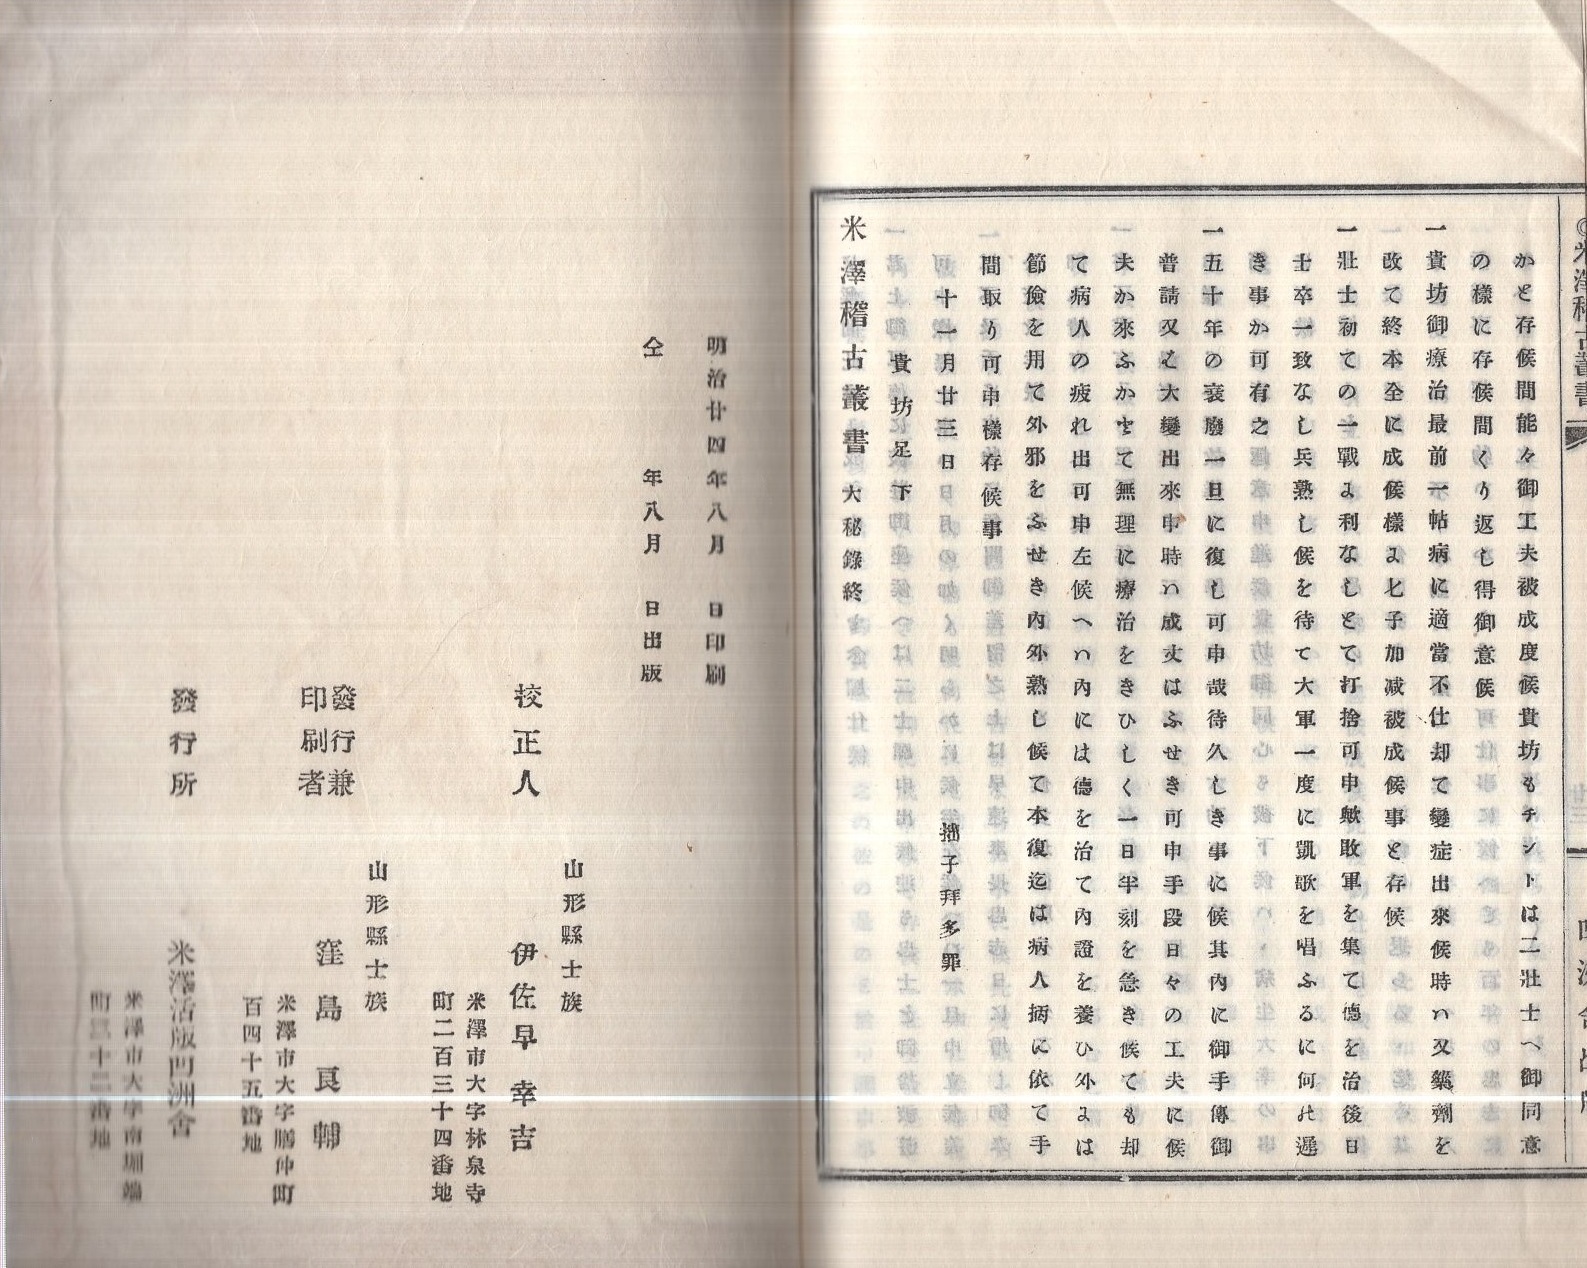 米澤稽古叢書
かと存候間能々御工夫被成度候貴坊もチントは二壯士へ御同意
の樣に存候間くり返し得御意候
一貴坊御療治最前一帖病に適當不仕却て變症出來候時ハ又藥劑を
改て終本全に成候樣よ匕子加减被成候事と存候
一壯士初ての一戰よ利なしとて打捨可申歟敗軍を集て德を治後日
士卒一致なし兵熟し候を待て大軍一度に凱歌を唱ふるに何の遲
き事か可有之
一五十年の衰廢一旦に復し可申哉待久しき事に候其內に御手傳御
普請又と大變出來申時ハ成丈はふせき可申手段日々の工夫に候
夫か來ふかとて無理に療治をきひしく一日半刻を急き候ても却
て病人の疲れ出可申左候へハ內には德を治て內證を養ひ外よは
節儉を用て外邪をふせき內外熟し候て本復迄は病人柄に依て手
間取り可申樣存候事
十一月廿三日 拙子拜多罪
貴坊足下
米澤稽古叢書大秘錄終
明治廿四年八月 日印刷
仝 年八月 日出版
校正人
山形縣士族
伊佐早幸吉
米澤市大字林泉寺
町二百三十四番地
發行兼
印刷者
山形縣士族
窪島良輔
米澤市大字膳仲町
百四十五番地
發行所
米澤活版凹洲舍
米澤市大字南堀端
町三十二番地